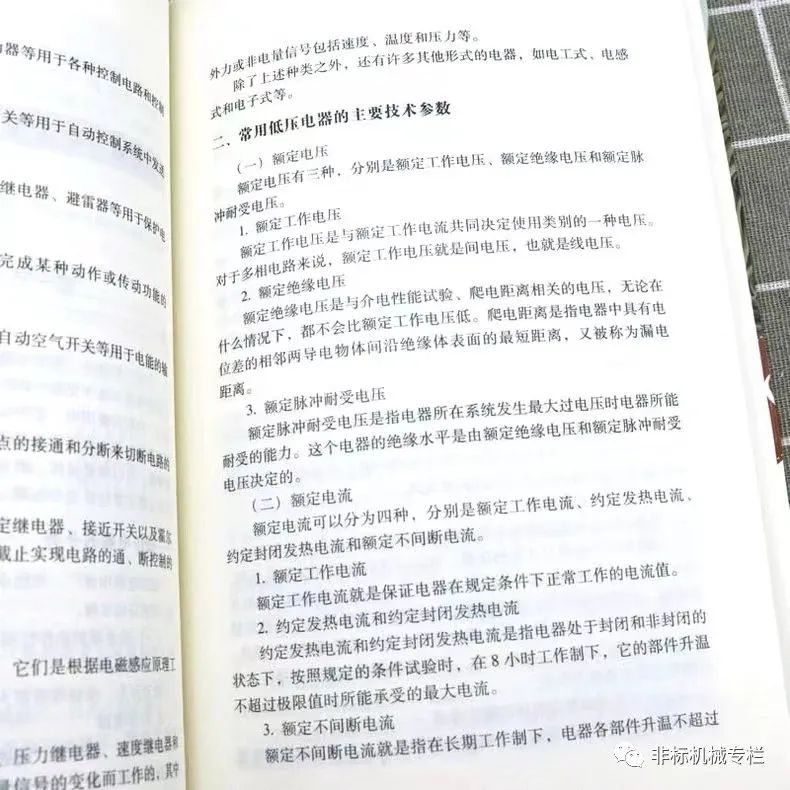 力器等用于各种控制电路和控制
关等用于自动控制系统中发送
继电器、避雷器等用于保护电
完成某种动作或传动功能的
自动空气开关等用于电能的输
点的接通和分断来切断电路的
定继电器、接近开关以及霍尔
截止实现电路的通、断控制的
它们是根据电磁感应原理工
、压力继电器、速度继电器和
量信号的变化而工作的，其中
外力或非电量信号包括速度、温度和压力等。
除了上述种类之外，还有许多其他形式的电器，如电工式、电感
式和电子式等。
二、常用低压电器的主要技术参数
（一）额定电压
额定电压有三种，分别是额定工作电压、额定绝缘电压和额定脉
冲耐受电压。
1. 额定工作电压
额定工作电压是与额定工作电流共同决定使用类别的一种电压。
对于多相电路来说，额定工作电压就是间电压，也就是线电压。
2. 额定绝缘电压
额定绝缘电压是与介电性能试验、爬电距离相关的电压，无论在
什么情况下，都不会比额定工作电压低。爬电距离是指电器中具有电
位差的相邻两导电物体间沿绝缘体表面的最短距离，又被称为漏电
距离。
3. 额定脉冲耐受电压
额定脉冲耐受电压是指电器所在系统发生最大过电压时电器所能
耐受的能力。这个电器的绝缘水平是由额定绝缘电压和额定脉冲耐受
电压决定的。
（二）额定电流
额定电流可以分为四种，分别是额定工作电流、约定发热电流、
约定封闭发热电流和额定不间断电流。
1. 额定工作电流
额定工作电流就是保证电器在规定条件下正常工作的电流值。
2. 约定发热电流和约定封闭发热电流
约定发热电流和约定封闭发热电流是指电器处于封闭和非封闭的
状态下，按照规定的条件试验时，在 8 小时工作制下，它的部件升温
不超过极限值时所能承受的最大电流。
3. 额定不间断电流
额定不间断电流就是指在长期工作制下，电器各部件升温不超过
非标机械专栏